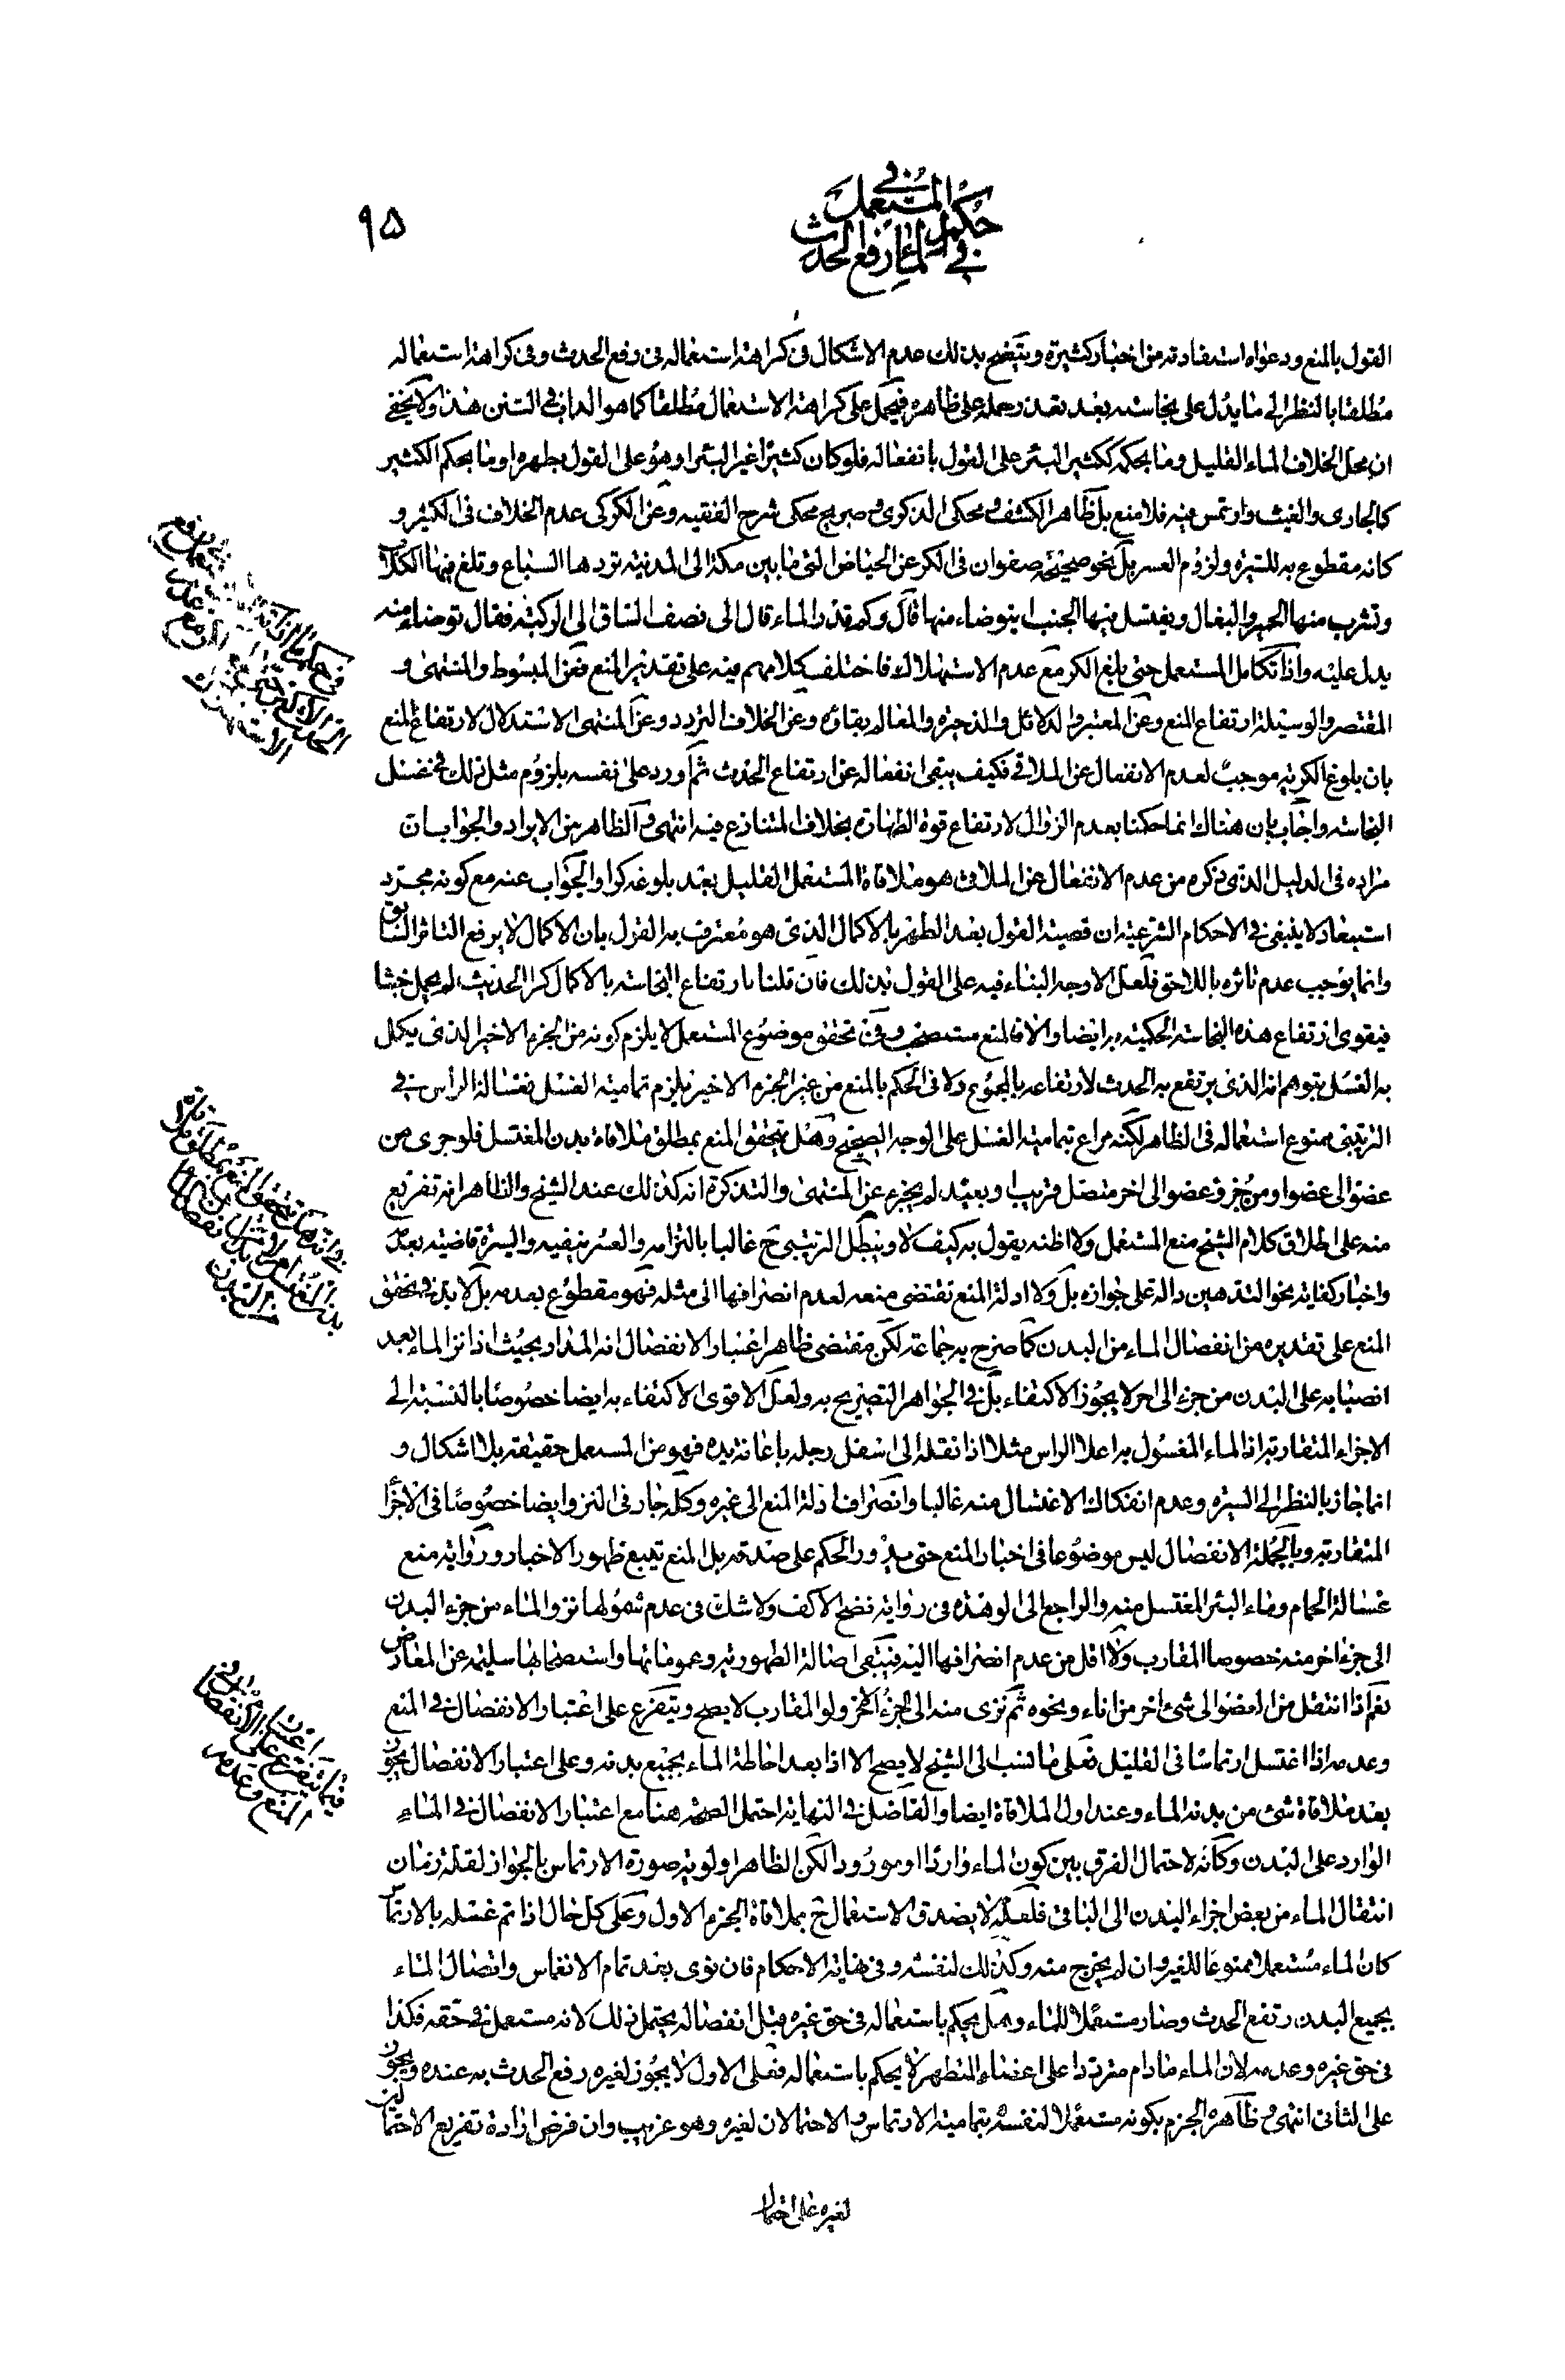 في حكم المستعمل
في الماء رفع الحدث
٩٥
القول بالمنع ودعواه استفادته من اخبار كثيرة ويتضح بذلك عدم الاشكال في كراهة استعماله في رفع الحدث وفي كراهة استعماله
مطلقا بالنظر الى ما يدل على نجاسته بعد تعذر حمله على ظاهره فيحمل على كراهة الاستعمال مطلقا كما هو الداب في السنن هذا ولا يخفى
ان محل الخلاف الماء القليل وما بحكمه ككثير البئر على القول بانفعاله فلو كان كثيرا غير البئر او هو على القول بطهره او ما بحكم الكثير
كالجارى والغيث وارتمس فيه فلا منع بل ظاهر الكشف ومحكى الذكرى وصريح محكى شرح الفقيه وعن الكركى عدم الخلاف في الكثير و
كانه مقطوع به للسيرة ولزوم العسر بل نحو صحيحة صفوان في الكر عن الحياض التى ما بين مكة الى المدينة تردها السباع وتلغ فيها الكلاب
وتشرب منها الحمير والبغال ويغتسل فيها الجنب ايتوضاء منها قال وكم قدر الماء قال الى نصف الساق الى الركبة فقال توضاء منه
يدل عليه واذا تكامل المستعمل حتى بلغ الكر مع عدم الاستهلاك فاختلف كلامهم فيه على تقدير المنع فعن المبسوط والمنتهى و
المقتصر والوسيلة ارتفاع المنع وعن المعتبر والدلائل والذخيرة والمعالم بقاؤه وعن الخلاف التردد وعن المنتهى الاستدلال لارتفاع المنع
بان بلوغ الكرية موجب لعدم الانفعال عن الملاقى فكيف يبقى انفعاله عن ارتفاع الحدث ثم اورد على نفسه بلزوم مثل ذلك في
النجاسة واجاب بان هناك انما حكمنا بعدم الزوال لارتفاع قوة الطهارة بخلاف المتنازع فيه انتهى والظاهر من الايراد والجواب ان
مراده في الدليل الذى ذكره من عدم الانفعال عن الملاقى هو ملاقاة المستعمل القليل بعد بلوغه كرا والجواب عنه مع كونه مجرد
استبعاد لا ينبغى في الاحكام الشرعية ان قضية القول بعد الطهر بالاكمال الذى هو معترف به القول بان الاكمال لا يرفع التاثر السابق
وانما يوجب عدم تاثره باللاحق فلعل الاوجه البناء فيه على القول بذلك فان قلنا بارتفاع النجاسة بالاكمال كرا لحديث لم يحمل خبثا
فيقوى ارتفاع هذه النجاسة الحكمية به ايضا والا فالمنع مستصحب وفي تحقق موضوع المستعمل لا يلزم كونه من الجزء الاخير الذى يكمل
به الغسل بتوهم انه الذى يرتفع به الحدث لارتفاعه بالمجموع ولا في الحكم بالمنع من غير الجزء الاخير يلزم تمامية الغسل فغسالة الراس في
الترتيبى ممنوع استعماله في الظاهر لكنه مراع بتمامية الغسل على الوجه الصحيح وهل يتحقق المنع بمطلق ملاقاة بدن المغتسل فلو جرى من
عضو الى عضو او من جزء عضو الى اخر متصل قريب او بعيد لم يجزء عن المنتهى والتذكرة انه كذلك عند الشيخ والظاهر انه تفريع
منه على اطلاق كلام الشيخ منع المستعمل ولا اظنه يقول به كيف لا ويبطل الترتيبى ح غالبا بالتزامه والعسر ينفيه والسيرة قاضية بعد
واخبار كفاية نحو التدهين دالة على جوازه بل ولا ادلة المنع تقتضى منعه لعدم انصرافها الى مثله فهو مقطوع بعدمه بل لابد في تحقق
المنع على تقديره من انفصال الماء من البدن كما صرح به جماعة لكن مقتضى ظاهر اعتبار الانفصال انه المدار بحيث اذا نز الماء بعد
انصبابه على البدن من جزء الى اخر لا يجوز الاكتفاء بل في الجواهر التصريح به ولعل الاقوى الاكتفاء به ايضا خصوصا بالنسبة الى
الاجزاء المتقاربة اذ الماء المغسول به اعلا الراس مثلا اذا نقله الى اسفل رجله باعانة يده فهو من المستعمل حقيقة بلا اشكال و
انما جاز بالنظر الى السيرة وعدم انفكاك الاغتسال منه غالبا وانصراف ادلة المنع الى غيره وكله جار في النز وايضا خصوصا في الاجزاء
المتقاربة وبالجملة الانفصال ليس موضوعا في اخبار المنع حتى يدور الحكم على صدقه بل المنع تتبع ظهور الاخبار ورواية منع
غسالة الحمام وماء البئر المغتسل منه والراجع الى الوهدة في رواية نضح الاكف ولا شك في عدم شمولها نزو الماء من جزء البدن
الى جزء اخر منه خصوصا المقارب ولا اقل من عدم انصرافها اليه فتبقى اصالة الطهورية وعموماتها واستصحابها سليمة عن المعارض
نعم اذا انتقل من العضو الى شئ اخر من اناء ونحوه ثم نزى منه الى الجزء الاخر ولو المقارب لا يصح ويتفرع على اعتبار الانفصال في المنع
وعدمه اذا اغتسل ارتماسا في القليل فعلى ما نسب الى الشيخ لا يصح الا اذا بعد احاطة الماء بجميع بدنه وعلى اعتبار الانفصال يجوز
بعد ملاقاة شئ من بدنه الماء وعند اول الملاقاة ايضا والفاضل في النهاية احتمل الصحة هنا مع اعتبار الانفصال في الماء
الوارد على البدن وكانه لاحتمال الفرق بين كون الماء واردا او مورودا لكن الظاهر اولوية صورة الارتماس بالجواز لقلة زمان
انتقال الماء من بعض اجزاء البدن الى الباقى فلعله لا يصدق الاستعمال ح بملاقاة الجزء الاول وعلى كل حال اذا تم غسله بالارتماس
كان الماء مستعملا ممنوعا للغير وان لم يخرج منه وكذلك لنفسه وفي نهاية الاحكام فان نوى بعد تمام الانغماس واتصال الماء
بجميع البدن رتفع الحدث وصار مستعملا للماء وهل يحكم باستعماله في حق غيره قبل انفصاله يحتمل ذلك لانه مستعمل في حقه فكذا
في حق غيره وعدمه لان الماء مادام مترددا على اعضاء المتطهر لا يحكم باستعماله فعلى الاول لا يجوز لغيره رفع الحدث به عنده ويجوز
على الثانى انتهى وظاهره الجزم بكونه مستعملا لنفسه بتمامية الارتماس والاحتمالان لغيره وهو غريب وان فرض ارادة تفريع الاحتمالين
لغيره على احتمالا